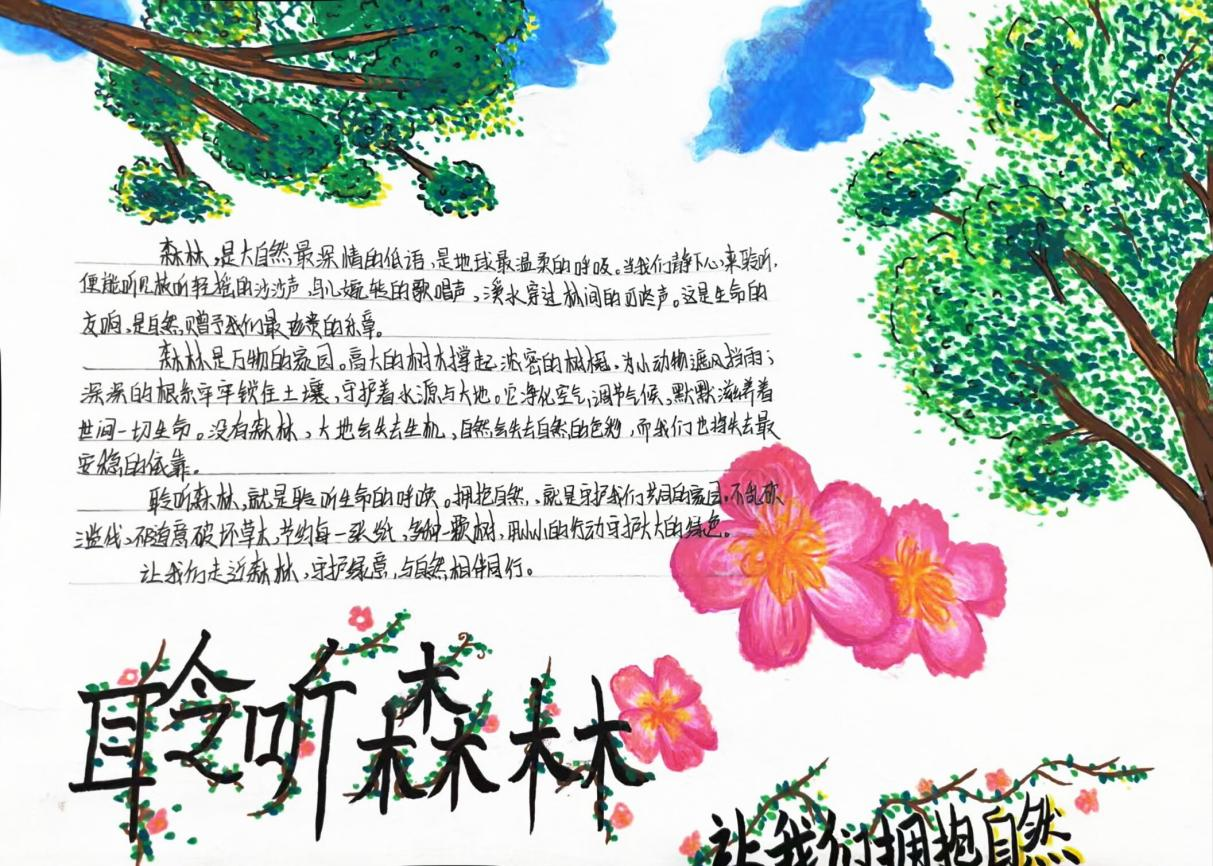 森林,是大自然最深情的低语,是地球最温柔的呼吸。当我们静下心来聆听,
便能听见枝叶轻摇的沙沙声,鸟儿婉转的歌唱声,溪水穿过林间的叮咚声。这是生命的
交响,是自然赠予我们最珍贵的乐章。
森林是万物的家园。高大的树木撑起浓密的树棚,为小动物遮风挡雨;
深深的根系牢牢锁住土壤,守护着水源与大地。它净化空气,调节气候,默默滋养着
世间一切生命。没有森林,大地会失去生机,自然会失去自然的色彩,而我们也将失去最
安稳的依靠。
聆听森林,就是聆听生命的呼唤。拥抱自然,就是守护我们共同的家园。不乱砍
滥伐,不随意破坏草木,节约每一张纸,多种一颗树,用小小的行动守护大大的绿色。
让我们走近森林,守护绿意,与自然相伴同行。
聆听森林
让我们拥抱自然